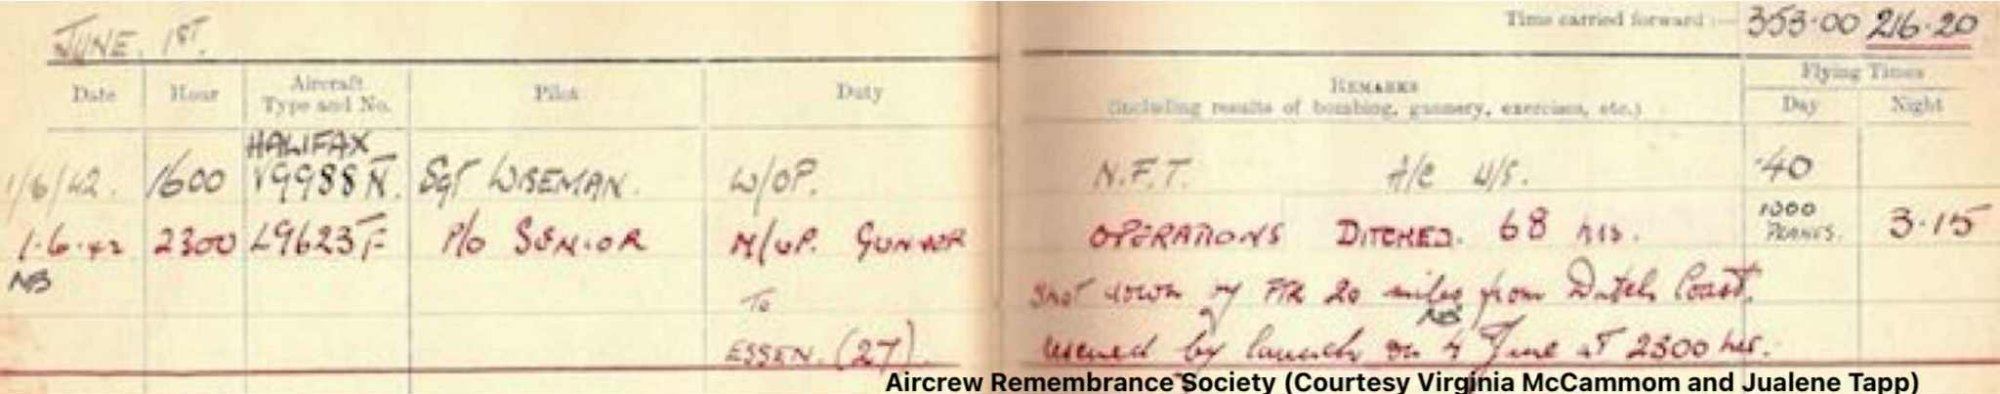 JUNE. 1ST.
Time carried forward :— 353·00 216·20
Date Hour Aircraft Type and No. Pilot Duty REMARKS (including results of bombing, gunnery, exercises, etc.) Flying Times Day Night
HALIFAX
1/6/42. 1600 V9988 N. SGT WISEMAN. W/OP. N.F.T. A/C U/S. ·40
1·6·42 2300 L9623 F P/O SENIOR M/UP. GUNNER OPERATIONS DITCHED. 68 hrs. 1000 PLANES. 3·15
NB To Shot down by FTR 20 miles from Dutch Coast.
NB
ESSEN. (27). Rescued by launch on 4 June at 2300 hrs.
Aircrew Remembrance Society (Courtesy Virginia McCammom and Jualene Tapp)